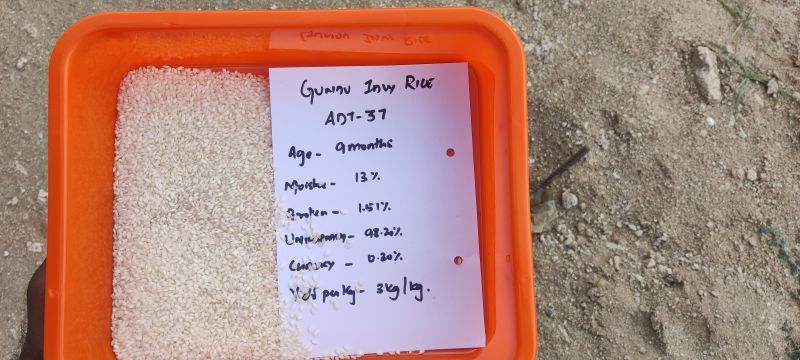 GUNDU IDLY RICE
ADT-37
Age - 9 months
Moisture - 13%
Broken - 1.51%
Uniformity - 98.20%
Chalky - 0.20%
Yield per kg - 3kg/kg.